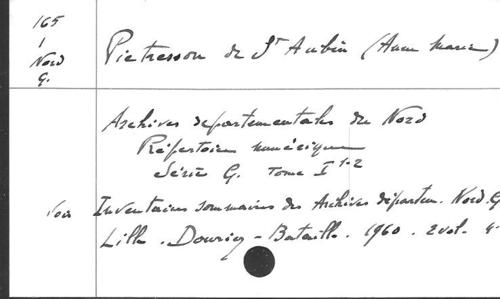 165
1
Nord
G.
Pietresson de St Aubin (Anne Marie)
Archives départementales du Nord
Répertoire numérique
Série G. Tome I 1-2
Voir Inventaires sommaires des Archives départem. Nord. G
Lille. Douriez-Bataille. 1960. 2 vol. 4°